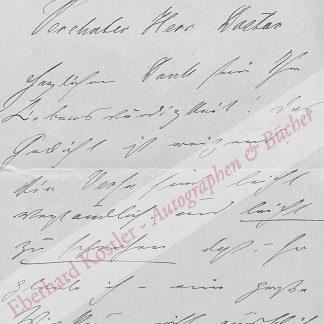 Verehrter Herr Doctor
herzlichen Dank für Ihre
Liebenswürdigkeit! Das
Gedicht ist reizend.
die Verse sind leicht
verständlich und leicht
zu sprechen
glaube ich – eine große
Eberhard Köstler - Autographen & Bücher